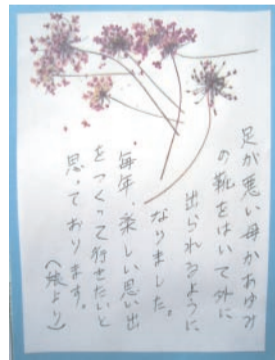 足が悪い母があゆみ
の靴をはいて外に
出られるように
なりました。
毎年、楽しい思い出
をつくって行きたいと
思っております。
（娘より）